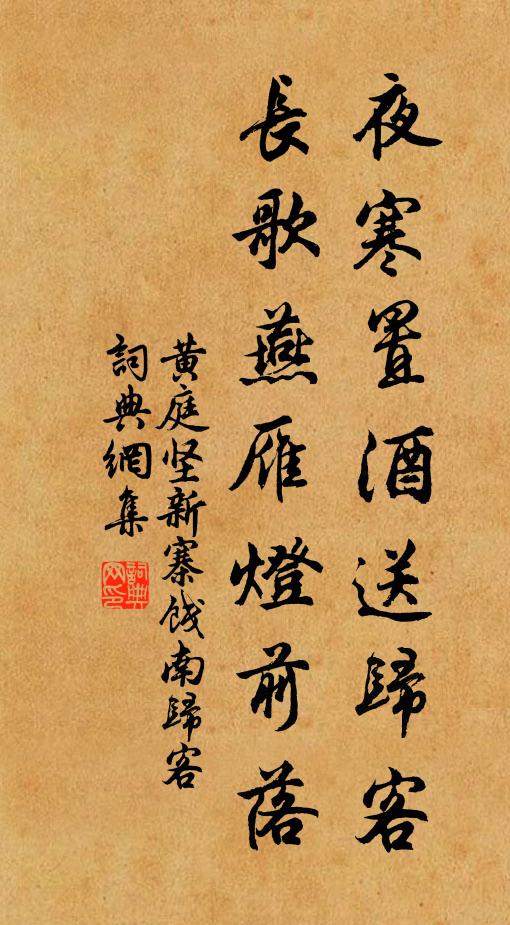 夜寒置酒送歸客
長歌燕雁燈前落
黄庭坚新寨餞南歸客
詞典網集
詞典网印